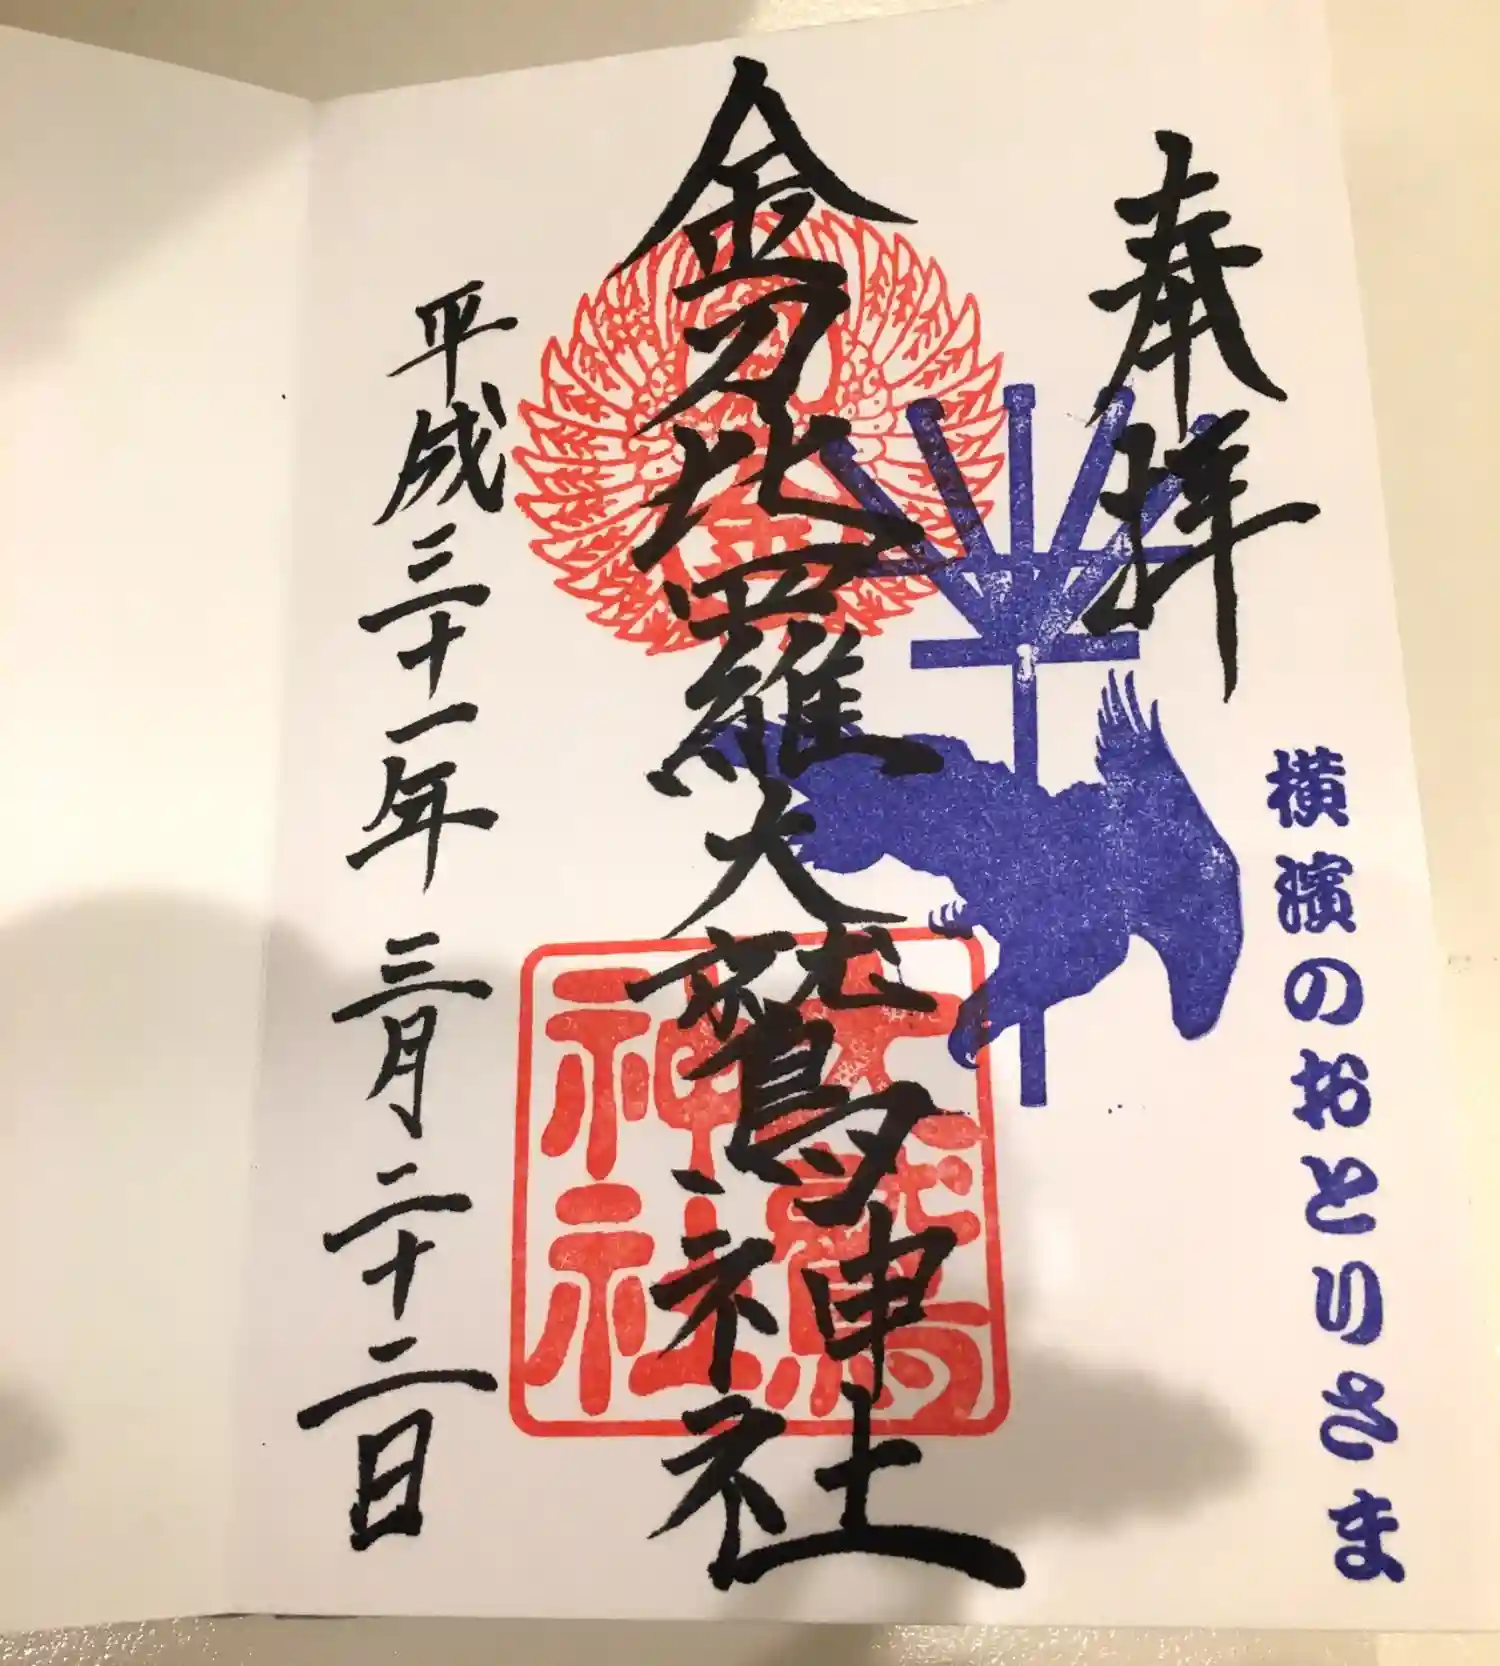 奉拝
横濱のおとりさま
金刀比羅大鷲神社
大鷲
神社
平成三十一年三月二十二日